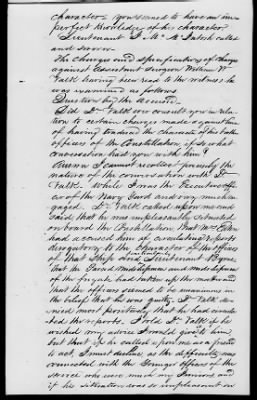 character. You seemed to have an im-
perfect knowledge of his character?
Lieutenant J. Mc. McIntosh called
and sworn.
The charges and specifications of charges
against Assistant Surgeon William V.
Falk having been read to the witness he
was examined as follows
Question by the accused.
Did Dr. Falk ever consult you in rela-
tion to certain charges made against him
of having traduced the character of the
officers of the Constellation, if so what
conversation had you with him?
Answer I cannot recollect precisely the
nature of the conversation with Dr.
Falk. While I was the Executive offi-
cer of the Navy Yard and very much en-
gaged, Dr. Falk called upon me and
said, that he was unpleasantly situated
on board the Constellation. That Mr.
had accused him of circulating reports
derogatory to the character of the officers
of that Ship and Lieutenant
that the Passed Midshipmen and Midshipmen
of the frigate had taken up the matter and
that the officers seemed to be unanimous in
the belief that he was guilty. Dr. Falk de-
nied most positively that he had circula-
ted the reports. I told Dr. Falk if he
wished my advice I would give it him
but that if he called upon me as a friend
to act, I must decline as the difficulty was
connected with the younger officers of the
service who were not my Seniors and
if his situation was so unpleasant on